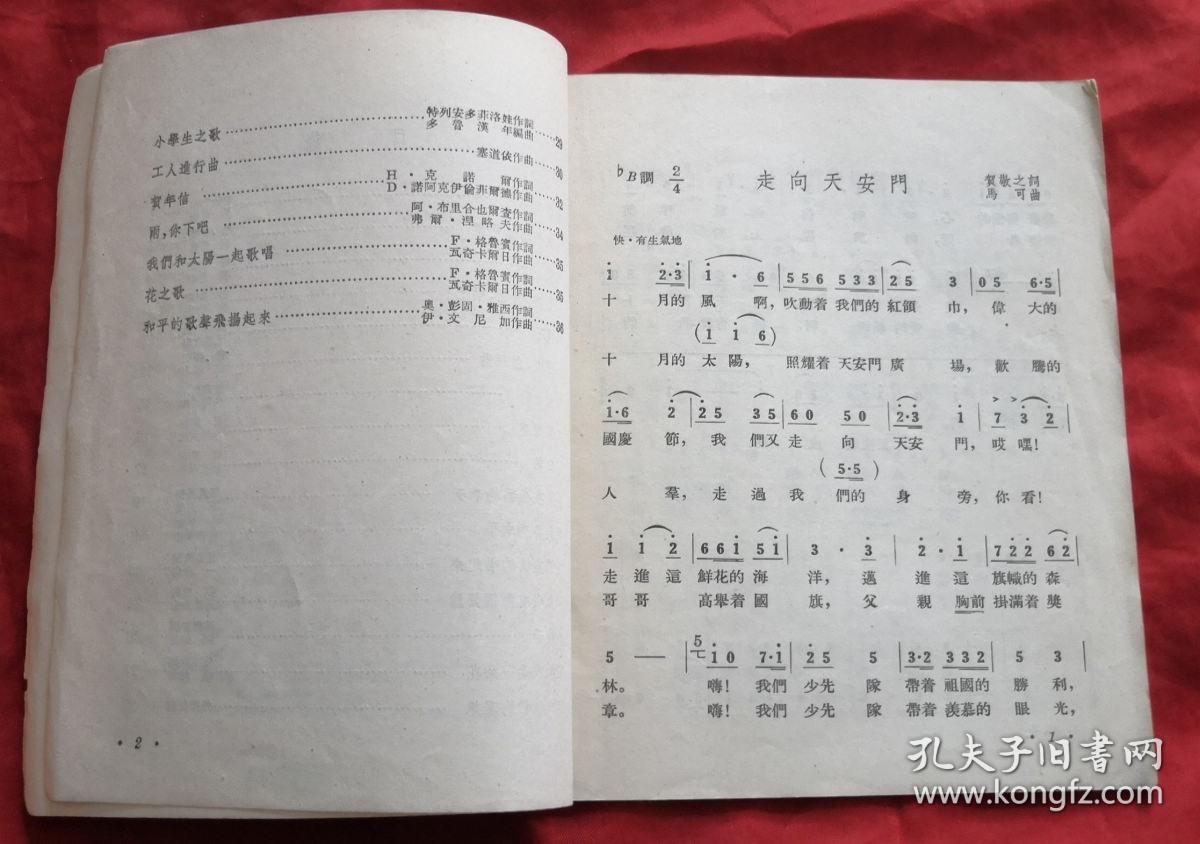 小學生之歌 特列安多菲洛娃作詞 多魯漢年編曲 29
工人進行曲 塞道依作曲 30
賀年信 H·克諾爾作詞 D·諾阿克伊倫菲爾德作曲 32
雨,你下吧 阿·布里合也爾查作詞 弗爾·涅略夫作曲 34
我們和太陽一起歌唱 F·格魯賓作詞 瓦奇卡爾日作曲 35
花之歌 F·格魯賓作詞 瓦奇卡爾日作曲
和平的歌聲飛揚起來 奧·彭固·雅西作詞 伊·文尼加作曲 36
·2·
♭B調 2/4 走向天安門 賀敬之詞 馬可曲
快·有生氣地
1 2·3 | 1·6 | 556 533 | 25 3 | 05 6·5
十月的風啊,吹動着我們的紅領巾,偉大的
(1 16)
十月的太陽,照耀着天安門廣場,歡騰的
1·6 2 | 25 35 | 60 50 | 2·3 1 | 7 3 2
國慶節,我們又走向天安門,哎嘿!
(5·5)
人羣,走過我們的身旁,你看!
1 1 2 | 661 51 | 3·3 | 2·1 | 722 62
走進這鮮花的海洋,邁進這旗幟的森
哥哥高舉着國旗,父親胸前掛滿着獎
5 — | 5 10 7·1 | 25 5 | 3·2 332 | 5 3
林。嗨!我們少先隊帶着祖國的勝利,
章。嗨!我們少先隊帶着羨慕的眼光,
·1·
孔夫子旧書网
www.kongfz.com